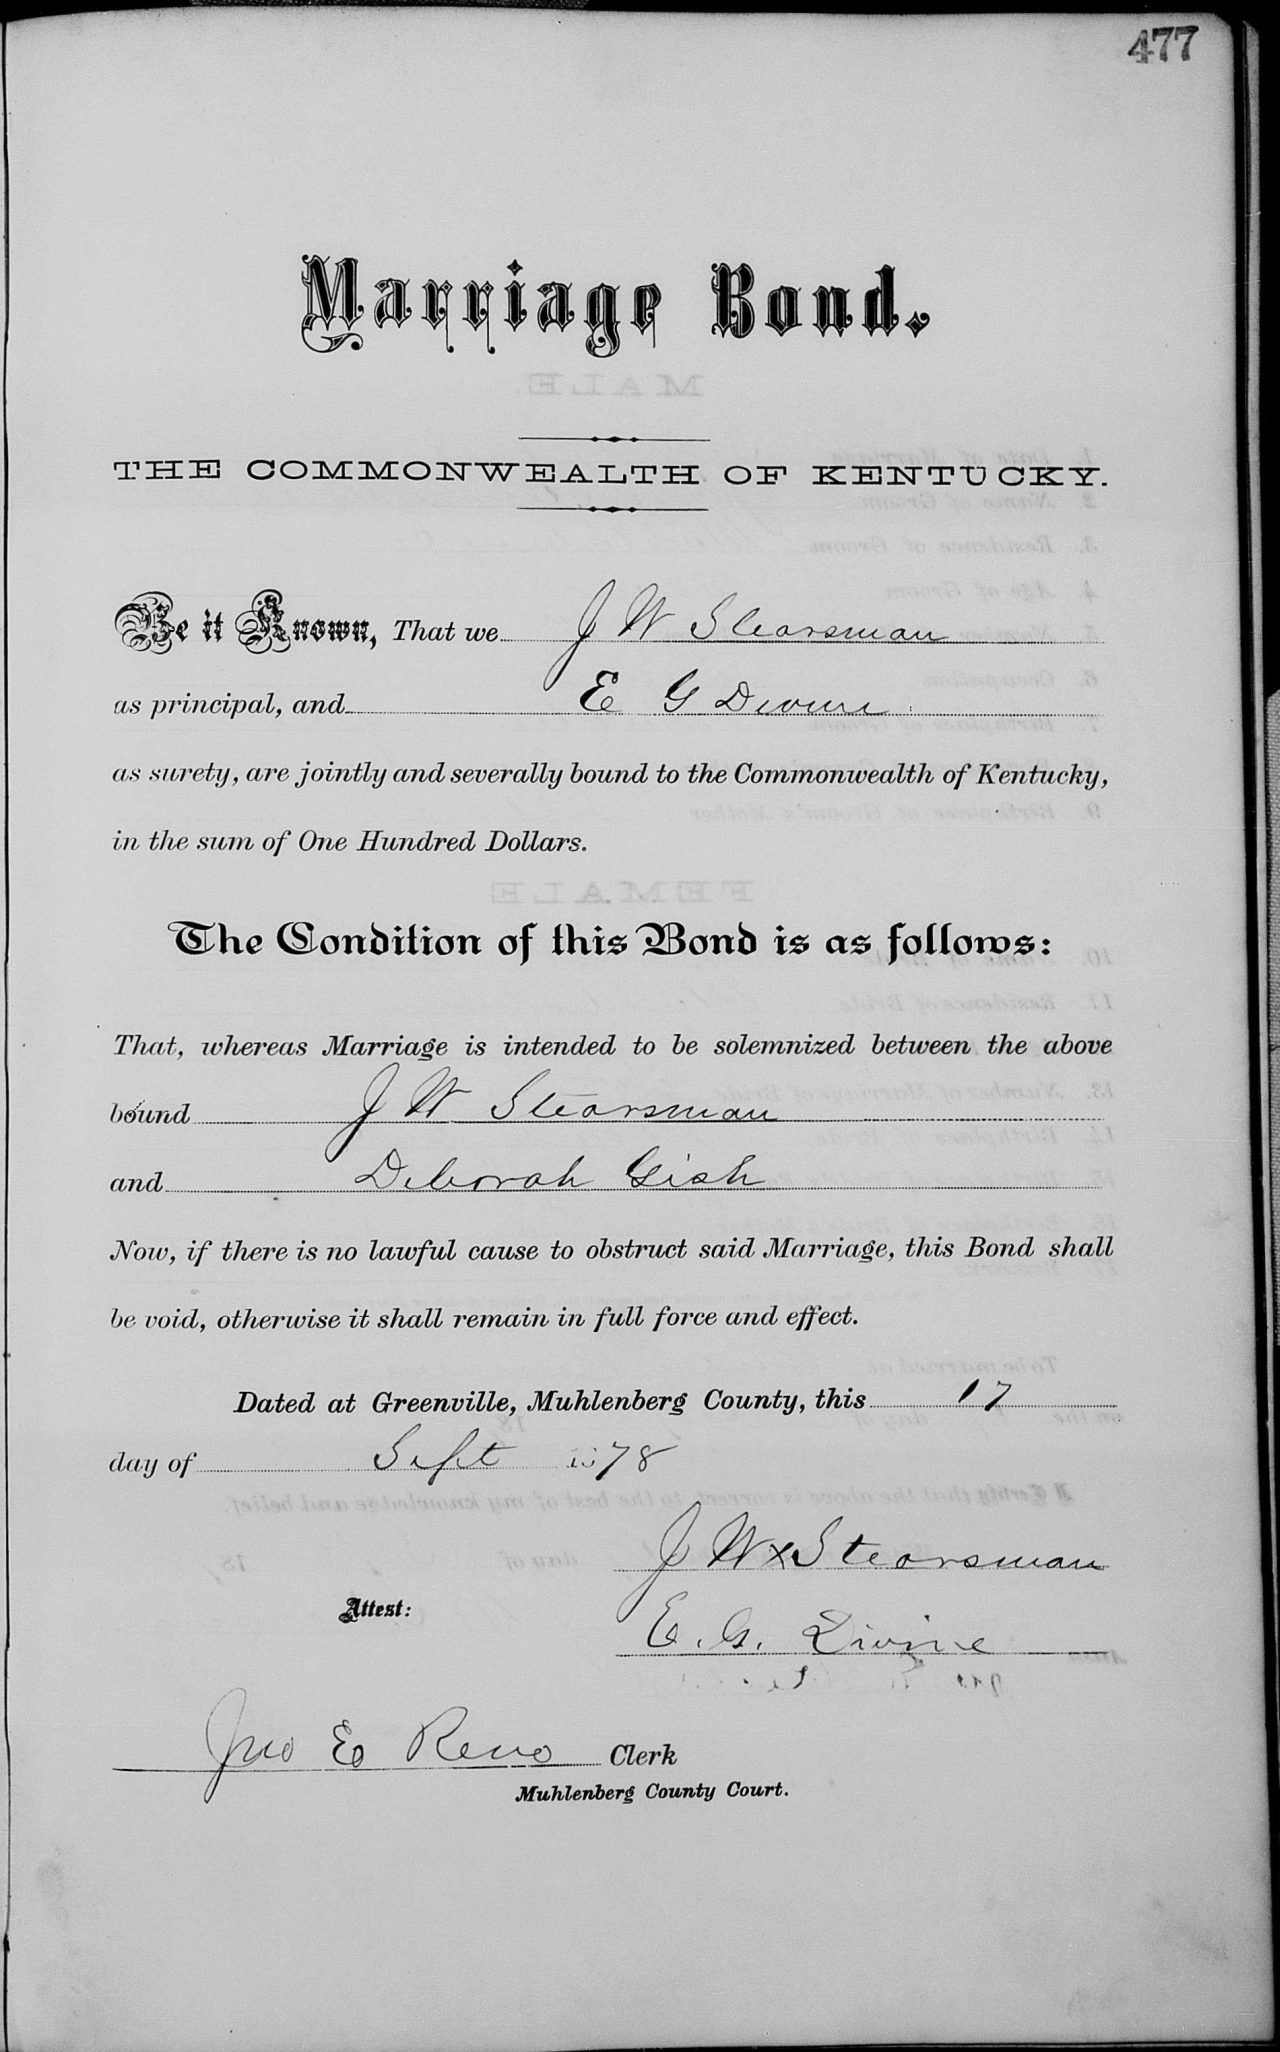 477
Marriage Bond.
THE COMMONWEALTH OF KENTUCKY.
Be it Known, That we J W Stearsman
as principal, and E G Divine
as surety, are jointly and severally bound to the Commonwealth of Kentucky,
in the sum of One Hundred Dollars.
The Condition of this Bond is as follows:
That, whereas Marriage is intended to be solemnized between the above
bound J W Stearsman
and Deborah Gish
Now, if there is no lawful cause to obstruct said Marriage, this Bond shall
be void, otherwise it shall remain in full force and effect.
Dated at Greenville, Muhlenberg County, this 17
day of Sept 1878
J W x Stearsman
Attest:
E. G. Divine
Jno E Reno Clerk
Muhlenberg County Court.